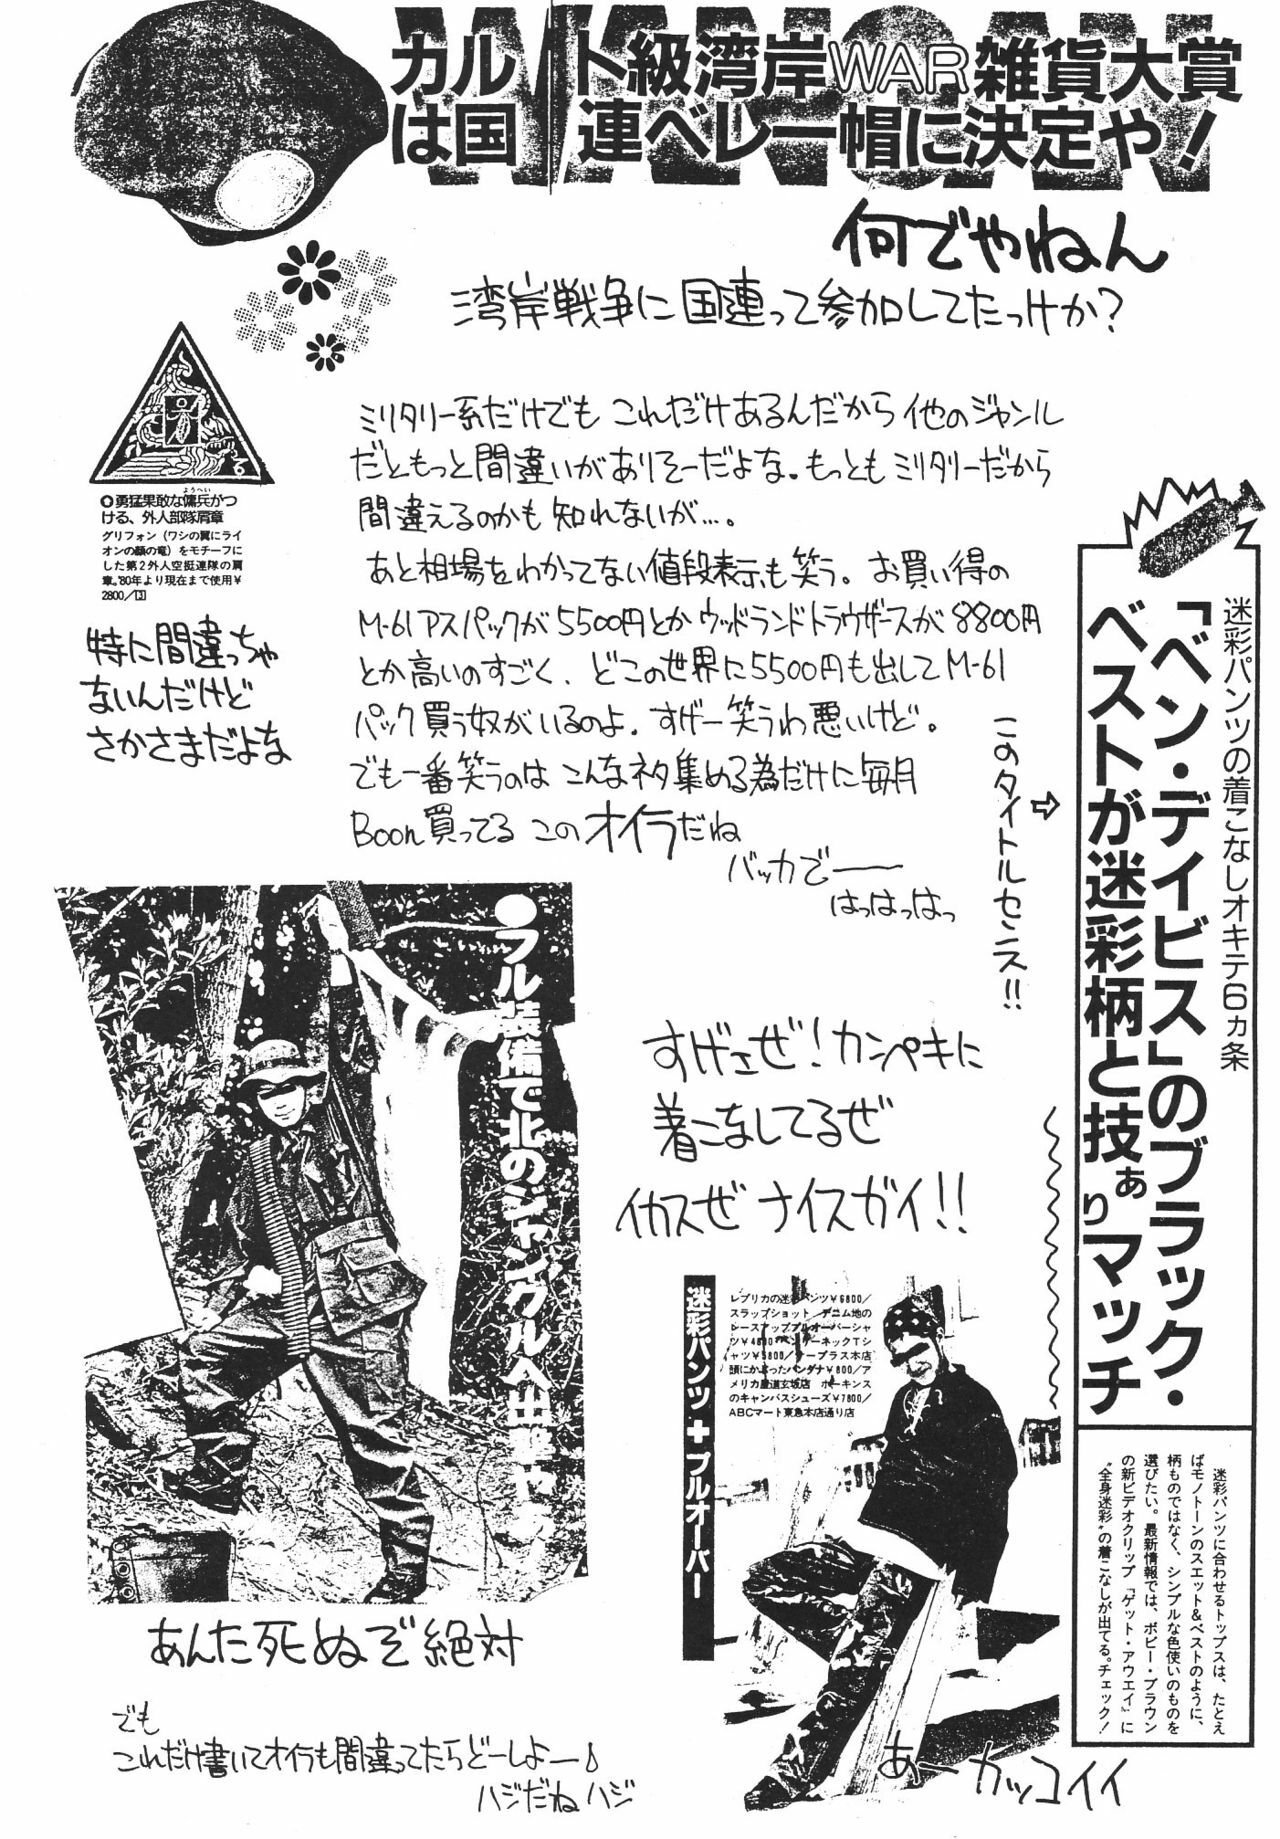 WANGAN
カルト級湾岸WAR雑貨大賞
は国連ベレー帽に決定や!
何でやねん
湾岸戦争に国連って参加してたっけか?
ミリタリー系だけでも これだけあるんだから 他のジャンル
だともっと間違いがありそーだよな。もっともミリタリーだから
間違えるのかも 知れないが…。
あと相場をわかってない値段表示も笑う。お買い得の
M-61アスパックが5500円とかウッドランドトラウザースが8800円
とか高いのすごく、どこの世界に5500円も出してM-61
パック買う奴がいるのよ。すげー笑うわ悪いけど。
でも一番笑うのは こんなネタ集める為だけに毎月
Boon買ってる このオイラだね
バッカでー
はっはっはっ
勇猛果敢な傭兵がつ
ようへい
ける、外人部隊肩章
グリフォン(ワシの翼にライ
オンの顔の竜)をモチーフに
した第2外人空挺連隊の肩
章。'80年より現在まで使用¥
2800/③
特に間違っちゃ
ないんだけど
さかさまだよな
このタイトルセンス!!
⇨
迷彩パンツの着こなしオキテ6ヵ条
「ベン・デイビス」のブラック・
ベストが迷彩柄と技ありマッチ
迷彩パンツに合わせるトップスは、たとえ
ばモノトーンのスエット&ベストのように、
柄ものではなく、シンプルな色使いのものを
選びたい。最新情報では、ボビー・ブラウン
の新ビデオクリップ『ゲット・アウエイ』に
“全身迷彩”の着こなしが出てる。チェック!
●フル装備で北のジャングルへ
あんた死ぬぞ絶対
すげェぜ!カンペキに
着こなしてるぜ
イカスぜ ナイスガイ!!
迷彩パンツ+プルオーバー
レプリカの迷彩パンツ¥6800/
スラップショット デニム地の
レースアッププルオーバーシャ
ツ¥4800 ヘンリーネックTシ
ャツ¥5800/
頭にかぶったバンダナ¥800/ア
メリカ屋道玄坂店 ホーキンス
のキャンバスシューズ¥7800/
ABCマート東急本店通り店
あーカッコイイ
でも
これだけ書いてオイラも間違ってたらどーしよー♪
ハジだねハジ